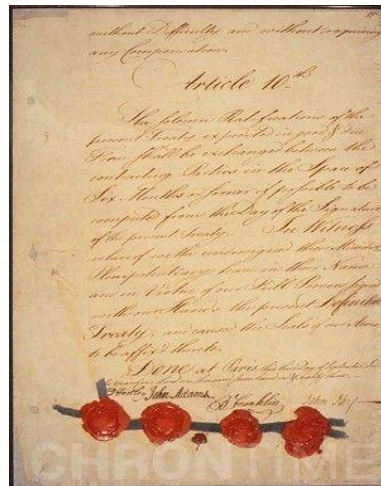 without Difficulty and without requiring
any Compensation.
Article 10th
The solemn Ratifications of the
present Treaty expedited in good & due
Form shall be exchanged between the
contracting Parties in the Space of
Six Months or sooner if possible to be
computed from the Day of the Signature
of the present Treaty. In Witness
whereof we the undersigned their Ministers
Plenipotentiary have in their Name
and in Virtue of our Full Powers signed
with our Hands the present Definitive
Treaty, and caused the Seals of our Arms
to be affix'd thereto.
Done at Paris, this third Day of September
D Hartley John Adams B Franklin John Jay
CHRONTIME